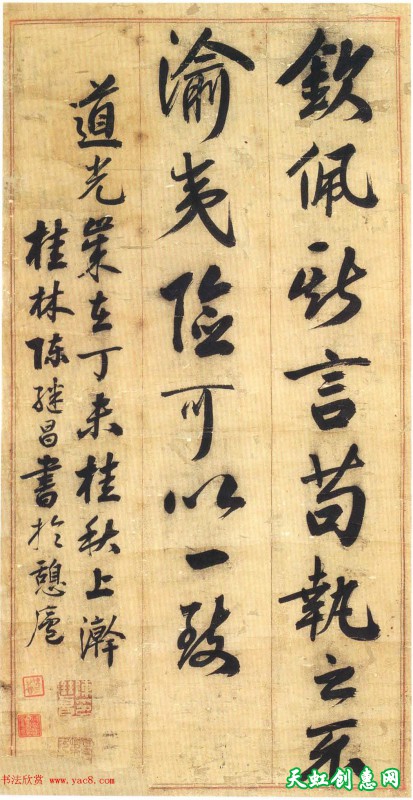 欽佩斯言苟執之不
渝夷險可以一致
道光歲在丁未桂秋上澣
桂林陳繼昌書於憩廬
书法欣赏 www.yac8.com
天虹创惠网